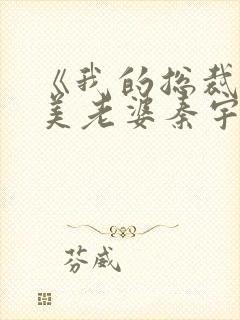 《我的总裁
美老婆秦宇
芬威